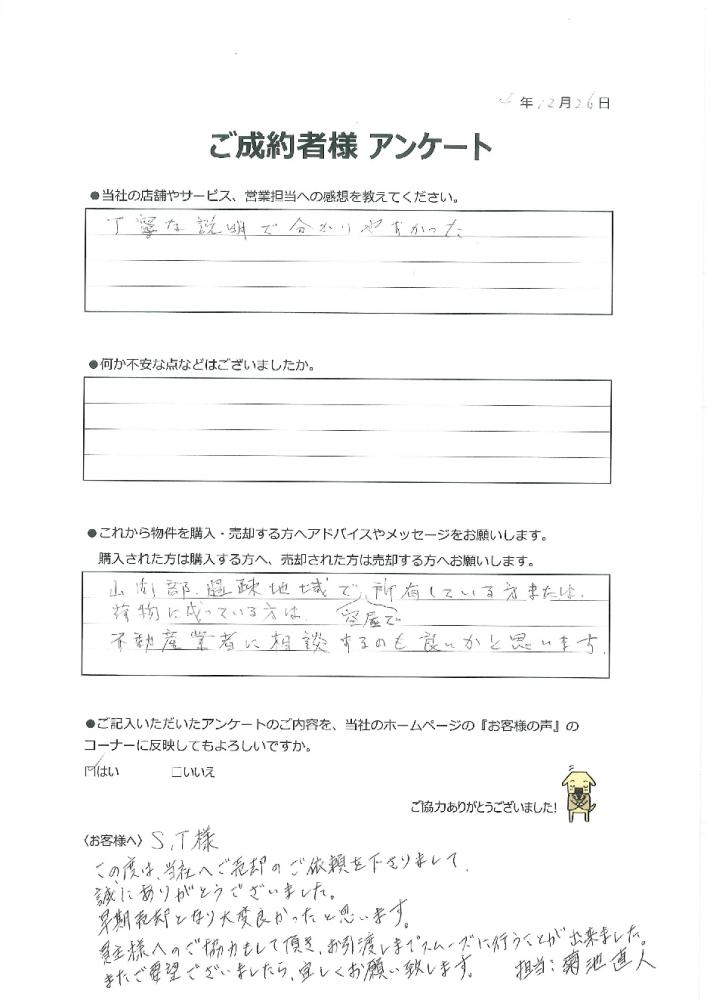 4年12月26日
ご成約者様 アンケート
●当社の店舗やサービス、営業担当への感想を教えてください。
丁寧な説明で分かりやすかった
●何か不安な点などはございましたか。
●これから物件を購入・売却する方へアドバイスやメッセージをお願いします。
購入された方は購入する方へ、売却された方は売却する方へお願いします。
山間部、過疎地域で、所有している方または、
荷物に成っている方は、空屋で
不動産業者に相談するのも良いかと思います。
●ご記入いただいたアンケートのご内容を、当社のホームページの『お客様の声』の
コーナーに反映してもよろしいですか。
☑はい □いいえ
ご協力ありがとうございました!
〈お客様へ〉S,T様
この度は、当社へご売却のご依頼を下さりまして、
誠にありがとうございました。
早期売却となり大変良かったと思います。
買主様へのご協力もして頂き、お引渡しまでスムーズに行うことが出来ました。
またご要望ございましたら、宜しくお願い致します。 担当:菊池直人